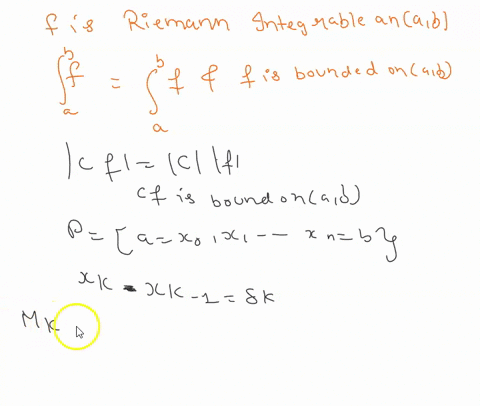 f is Riemann Integrable on (a,b)
∫_a^b f = ∫_a^b f & f is bounded on (a,b)
|c f| = |c| |f|
cf is bound on (a,b)
P = [a = x0, x1 -- xn = b}
xk - xk-1 = δk
Mk